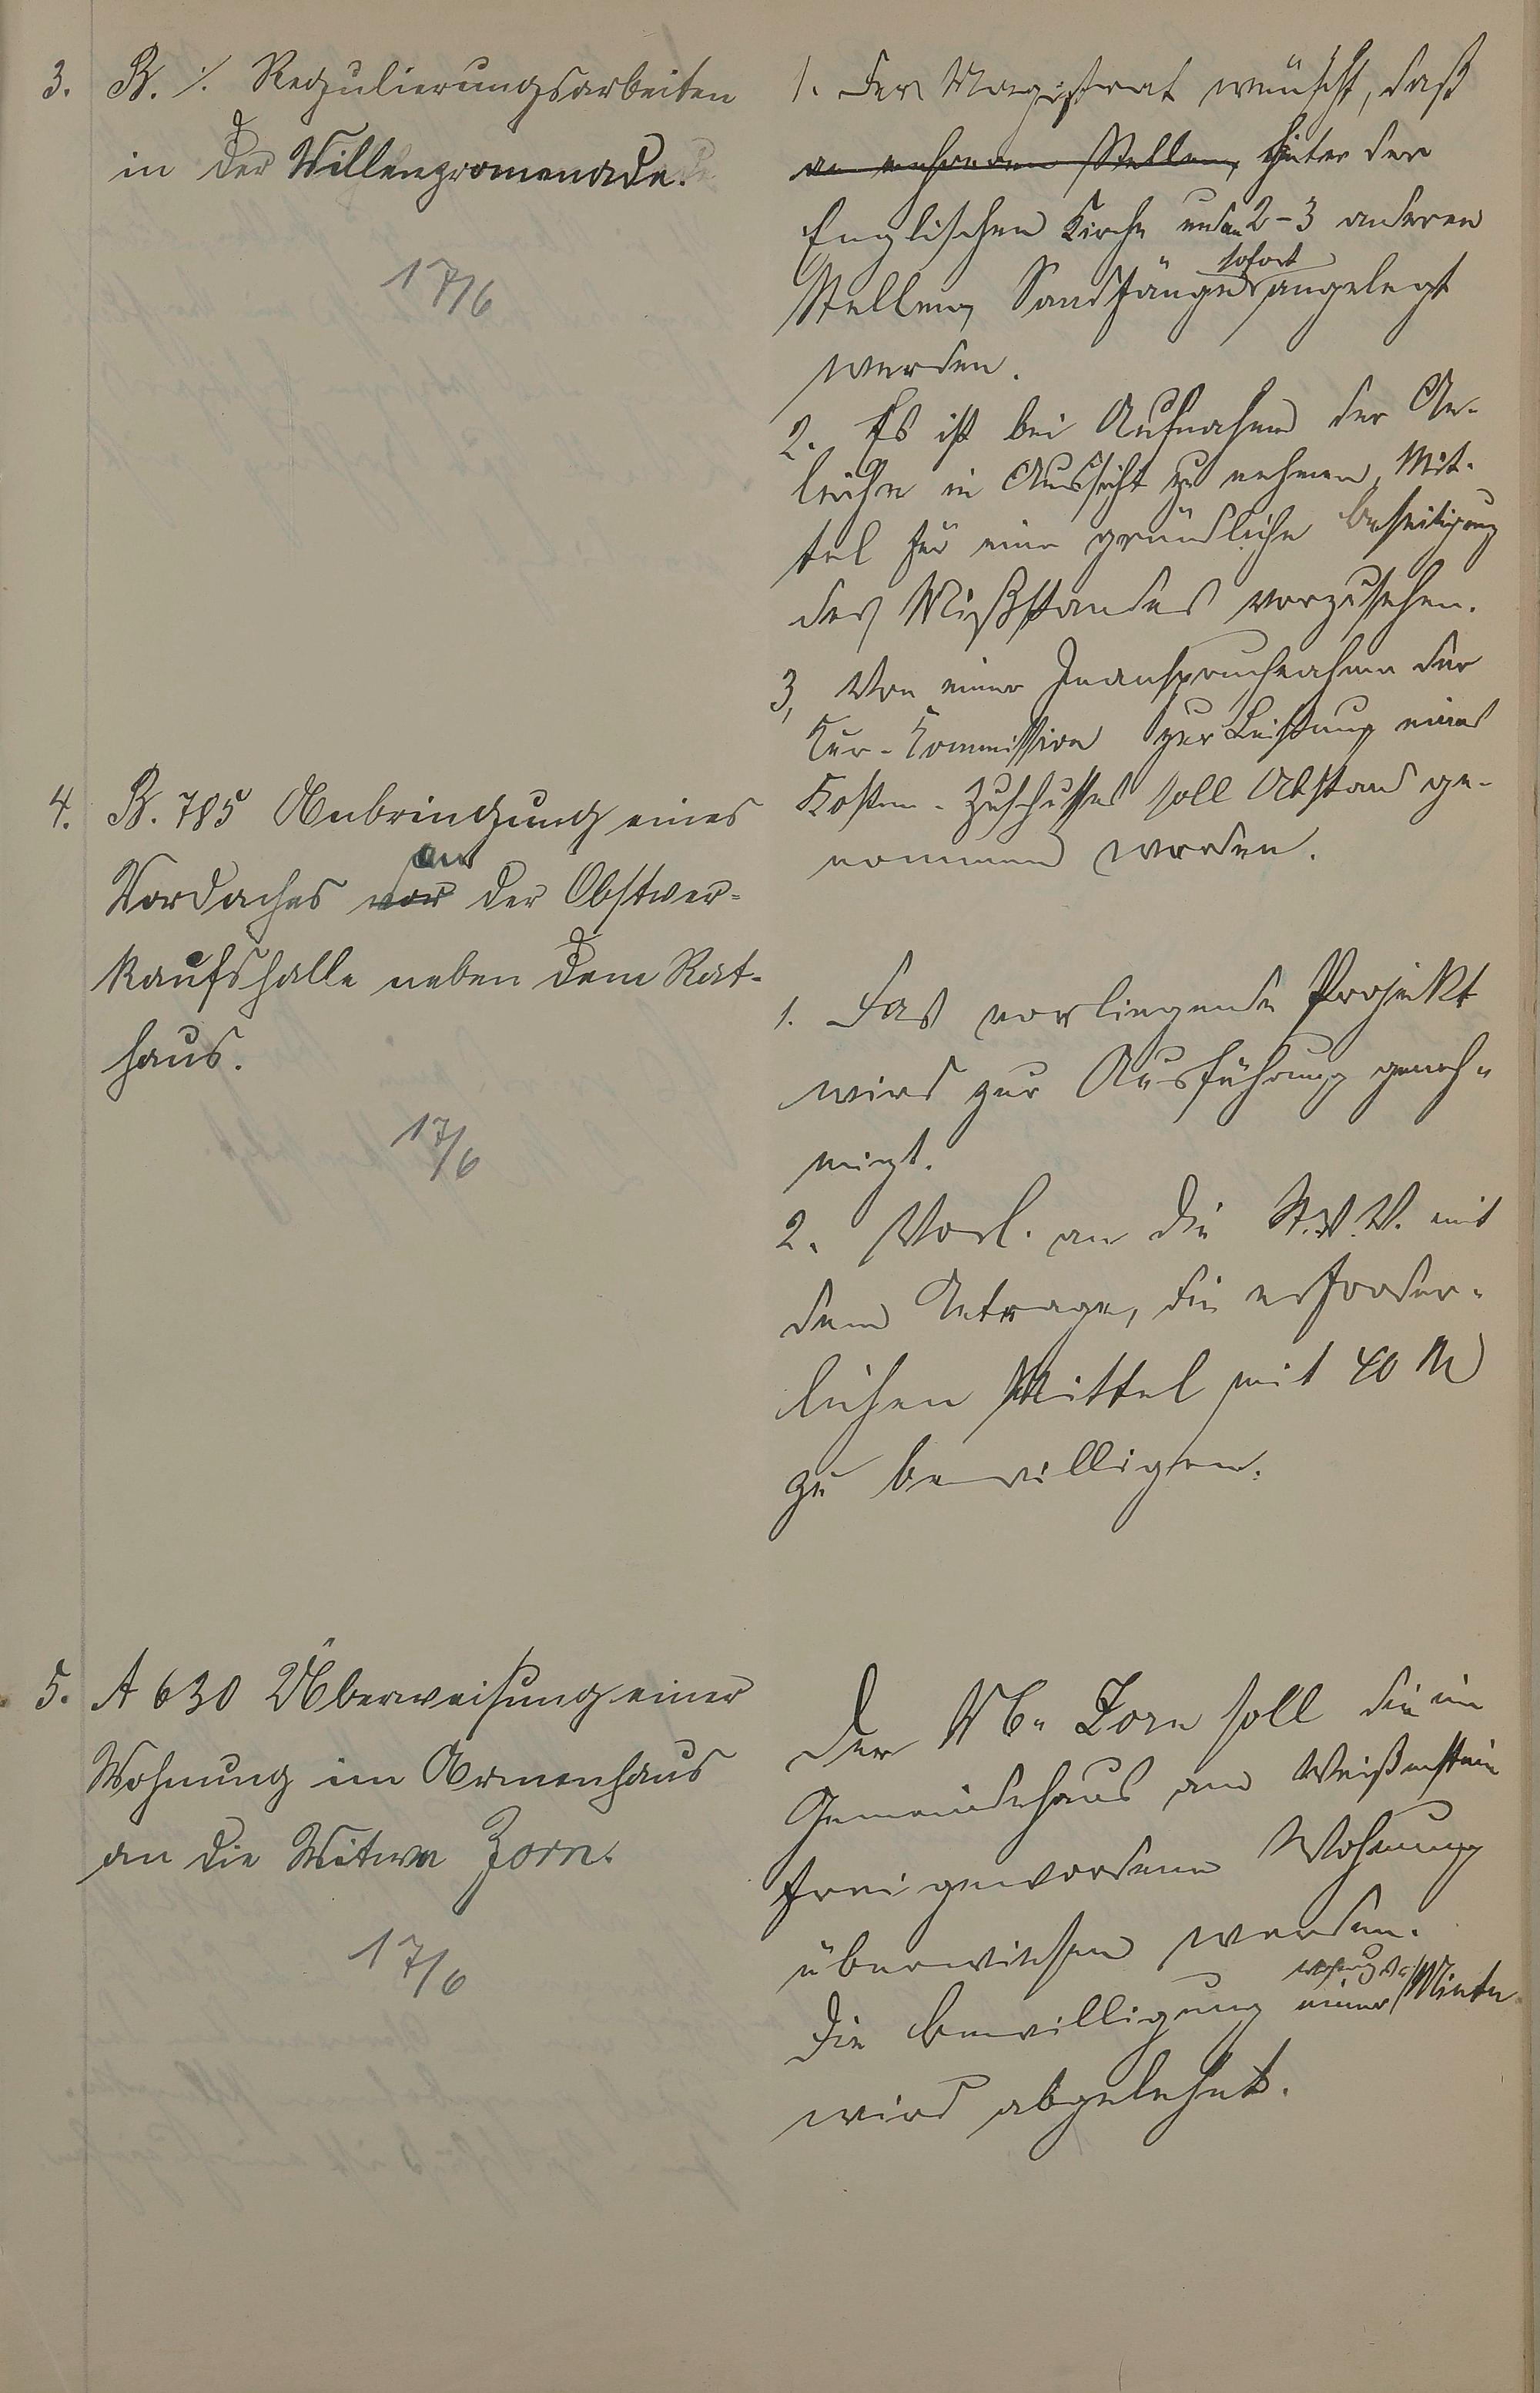 3. B. ./. Regulierungsarbeiten
in der Villenpromenade.
17/6
1. Der Magistrat wünscht, daß
an mehreren Stellen, hinter der
Englischen Kirche und an 2-3 anderen
sofort
Stellen, Sandfänge angelegt
werden.
2. Es ist bei Aufnahme der An-
leihe in Aussicht zu nehmen, Mit-
tel für eine gründliche Beseitigung
des Mißstandes vorzusehen.
3, Von einer Inanspruchnahme der
Kur-Kommission zur Leistung eines
Kosten-Zuschusses soll Abstand ge-
nommen werden.
4. B. 785 Anbringung eines
an
Vordaches vor der Obstver-
kaufshalle neben dem Rat-
haus.
17/6
1. Das vorliegende Projekt
wird zur Ausführung geneh-
migt.
2. Vorl. an die St.V.V. mit
dem Antrage, die erforder-
lichen Mittel mit 40 M
zu bewilligen.
5. A 630 Überweisung einer
Wohnung im Armenhaus
an die Witwe Zorn.
17/6
Der Zorn soll die im
Gemeindehaus am Weißenstein
frei gewordene Wohnung
überwiesen werden.
Die Bewilligung einer Miete
wird abgelehnt.